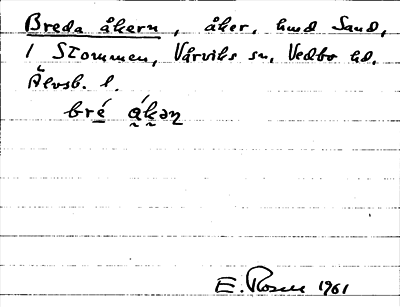 Breda åkern, åker, hmd Sand,
1 Stommen, Vårviks sn, Vedbo hd.
Älvsb. l.
bré ákan
E. Rosen 1961